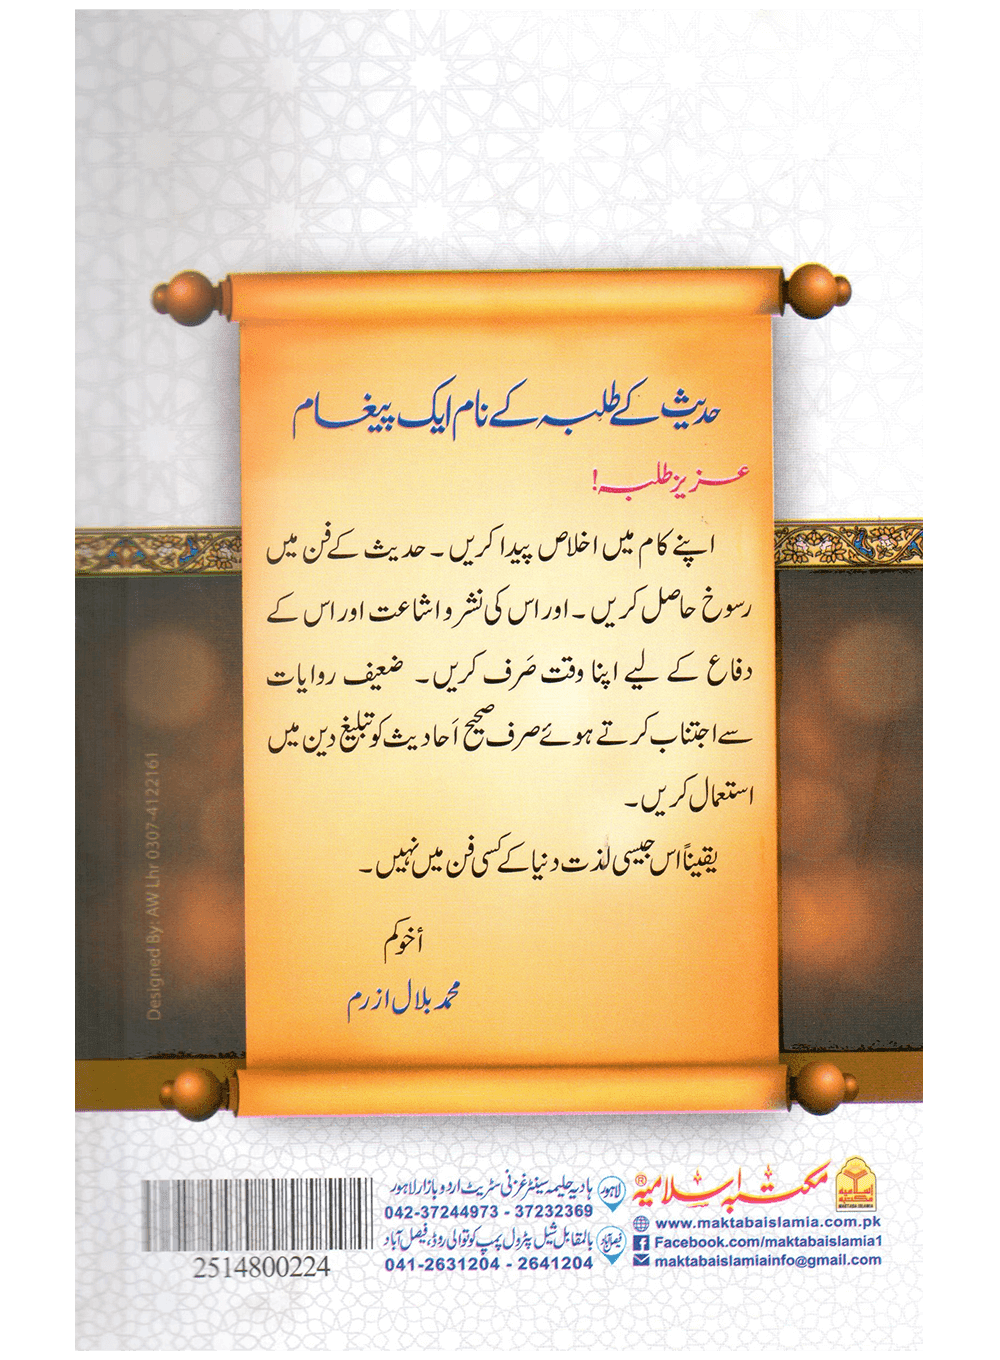 حدیث کے طلبہ کے نام ایک پیغام
عزیز طلبہ!
اپنے کام میں اخلاص پیدا کریں۔ حدیث کے فن میں
رسوخ حاصل کریں۔ اور اس کی نشر و اشاعت اور اس کے
دفاع کے لیے اپنا وقت صَرف کریں۔ ضعیف روایات
سے اجتناب کرتے ہوئے صرف صحیح اَحادیث کو تبلیغ دین میں
استعمال کریں۔
یقیناً اس جیسی لذت دنیا کے کسی فن میں نہیں۔
أخوکم
محمد بلال ازرم
Designed By: AW Lhr 0307-4122161
مکتبہ اسلامیہ®
اسلامیہ
MAKTABA ISLAMIA
www.maktabaislamia.com.pk
Facebook.com/maktabaislamia1
maktabaislamiainfo@gmail.com
لاہور
ہادیہ حلیمہ سینٹر غزنی سٹریٹ اردو بازار لاہور
042-37244973 - 37232369
فیصل آباد
بالمقابل شیل پٹرول پمپ کوتوالی روڈ، فیصل آباد
041-2631204 - 2641204
2514800224